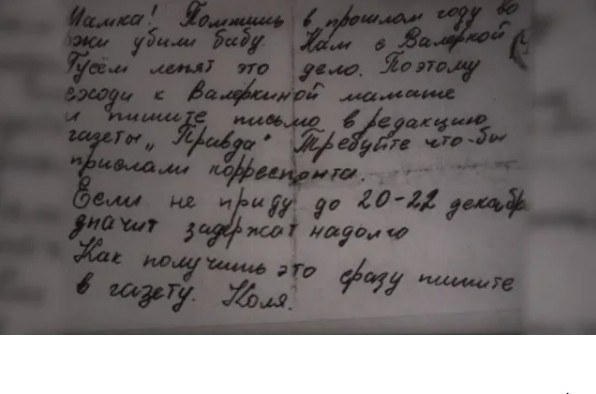 Мамка! Помнишь в прошлом году во
жи убили бабу. Нам с Валеркой
Гусем лепят это дело. Поэтому
сходи к Валеркиной мамаше
и пишите письмо в редакцию
газеты „Правда" Требуйте что-бы
прислали корреспонта.
Если не приду до 20-22 декабр
значит задержат надолго
Как получишь это сразу пишите
в газету. Коля.